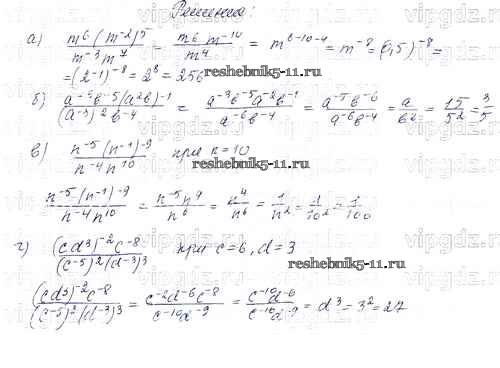 Решение:
а) m^6 (m^-2)^5 / m^-3 m^7 = m^6 m^-10 / m^4 = m^6-10-4 = m^-8 = (0,5)^-8 =
= (2^-1)^-8 = 2^8 = 256
reshebnik5-11.ru
б) a^-3 b^-5 (a^2 b)^-1 / (a^-3)^2 b^-4 = a^-3 b^-5 a^-2 b^-1 / a^-6 b^-4 = a^-5 b^-6 / a^-6 b^-4 = a / b^2 = 15 / 5^2 = 3 / 5
в) n^-5 (n^-1)^-9 / n^-4 n^10 при n = 10
reshebnik5-11.ru
n^-5 (n^-1)^-9 / n^-4 n^10 = n^-5 n^9 / n^6 = n^4 / n^6 = 1 / n^2 = 1 / 10^2 = 1 / 100
г) (cd^3)^-2 c^-8 / (c^-5)^2 (d^-3)^3 при c = 6, d = 3
reshebnik5-11.ru
(cd^3)^-2 c^-8 / (c^-5)^2 (d^-3)^3 = c^-2 d^-6 c^-8 / c^-10 d^-9 = c^-10 d^-6 / c^-10 d^-9 = d^3 = 3^2 = 27